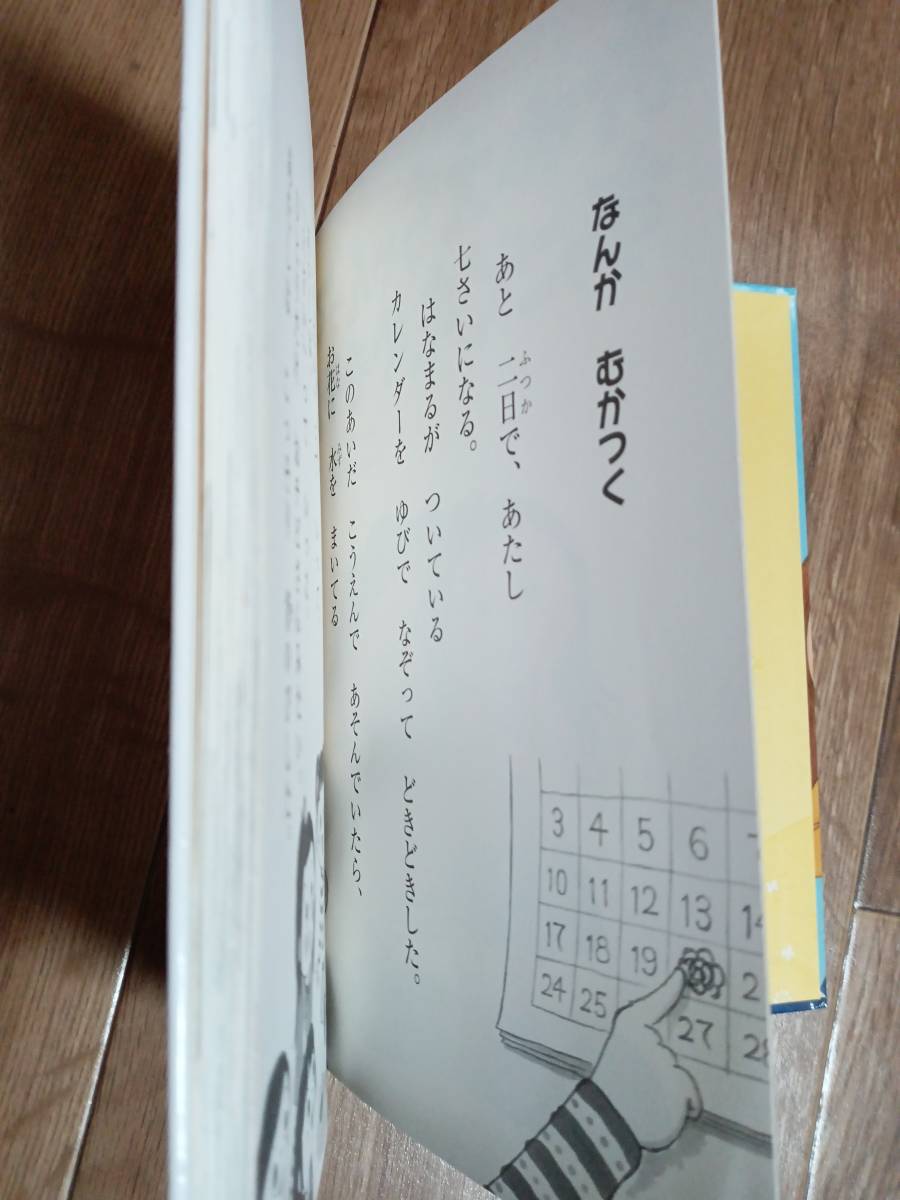 なんか むかつく
あと 二日で、 あたし
七さいになる。
はなまるが ついている
カレンダーを ゆびで なぞって どきどきした。
このあいだ こうえんで あそんでいたら、
お花に 水を まいてる
ふつか
はな
みず
3 4 5 6
10 11 12 13 14
17 18 19
24 25 27 28